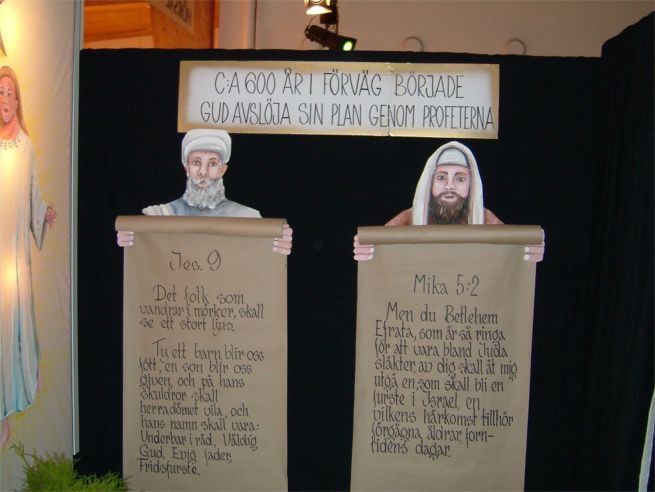 C:A 600 ÅR I FÖRVÄG BÖRJADE
GUD AVSLÖJA SIN PLAN GENOM PROFETERNA
Jes. 9
Det folk som
vandrar i mörker, skall
se ett stort ljus.
Ty ett barn blir oss
fött, en son blir oss
given, och på hans
skuldror skall
herradömet vila, och
hans namn skall vara:
Underbar i råd, Väldig
Gud, Evig fader,
Fridsfurste.
Mika 5:2
Men du Betlehem
Efrata, som är så ringa
för att vara bland Juda
släkter, av dig skall åt mig
utgå en, som skall bli en
furste i Israel, en
vilkens härkomst tillhör
förgågna åldrar, forn-
tidens dagar.